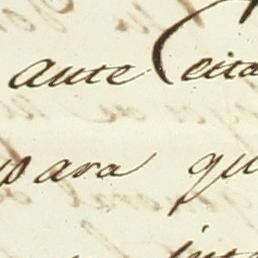 ante Ceita
para qu